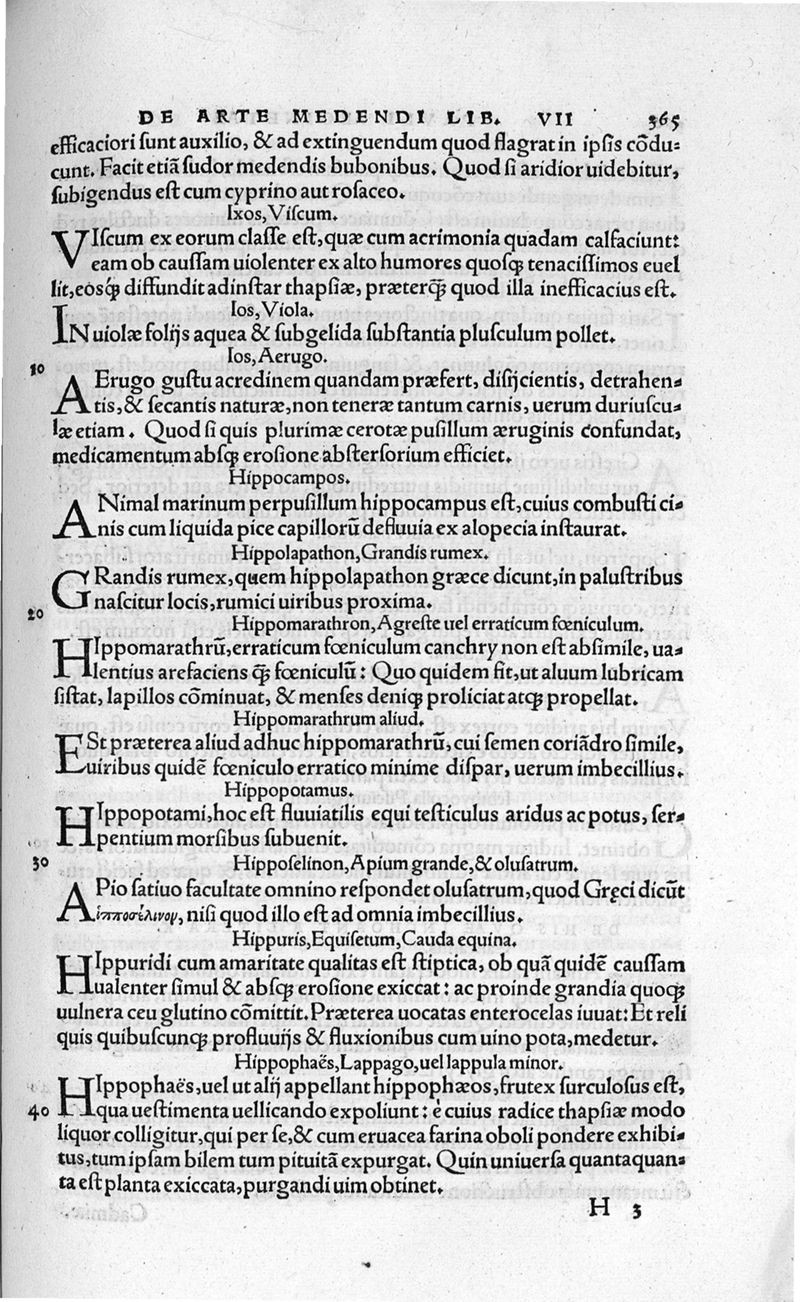 DE ARTE MEDENDI LIB. VII 365
efficaciori sunt auxilio, & ad extinguendum quod flagrat in ipsis cōdu=
cunt. Facit etiā sudor medendis bubonibus. Quod si aridior uidebitur,
subigendus est cum cyprino aut rosaceo.
Ixos, Viscum.
VIscum ex eorum classe est, quæ cum acrimonia quadam calfaciunt:
eam ob caussam uiolenter ex alto humores quosq; tenacissimos euel
lit, eosq́; diffundit ad instar thapsiæ, præterq̃; quod illa inefficacius est.
Ios, Viola.
IN uiolæ folijs aquea & subgelida substantia plusculum pollet.
Ios, Aerugo.
10
AErugo gustu acredinem quandam præfert, disijcientis, detrahen=
tis, & secantis naturæ, non teneræ tantum carnis, uerum duriuscu=
læ etiam. Quod si quis plurimæ cerotæ pusillum æruginis confundat,
medicamentum absq; erosione abstersorium efficiet.
Hippocampos.
ANimal marinum perpusillum hippocampus est, cuius combusti ci=
nis cum liquida pice capillorū defluuia ex alopecia instaurat.
Hippolapathon, Grandis rumex.
GRandis rumex, quem hippolapathon græce dicunt, in palustribus
nascitur locis, rumici uiribus proxima.
20
Hippomarathron, Agreste uel erraticum fœniculum.
HIppomarathrū, erraticum fœniculum canchry non est absimile, ua=
lentius arefaciens q̃; fœniculū: Quo quidem fit, ut aluum lubricam
sistat, lapillos cōminuat, & menses deniq; proliciat atq; propellat.
Hippomarathrum aliud.
ESt præterea aliud adhuc hippomarathrū, cui semen coriādro simile,
uiribus quidē fœniculo erratico minime dispar, uerum imbecillius.
Hippopotamus.
HIppopotami, hoc est fluuiatilis equi testiculus aridus ac potus, ser=
pentium morsibus subuenit.
30 Hipposelinon, Apium grande, & olusatrum.
APio satiuo facultate omnino respondet olusatrum, quod Gręci dicūt
ἱπποσέλινον, nisi quod illo est ad omnia imbecillius.
Hippuris, Equisetum, Cauda equina.
HIppuridi cum amaritate qualitas est stiptica, ob quā quidē caussam
ualenter simul & absq; erosione exiccat: ac proinde grandia quoq;
uulnera ceu glutino cōmittit. Præterea uocatas enterocelas iuuat: Et reli
quis quibuscunq; profluuijs & fluxionibus cum uino pota, medetur.
Hippophaës, Lappago, uel lappula minor.
HIppophaës, uel ut alij appellant hippophæos, frutex surculosus est,
40 qua uestimenta uellicando expoliunt: è cuius radice thapsiæ modo
liquor colligitur, qui per se, & cum eruacea farina oboli pondere exhibi=
tus, tum ipsam bilem tum pituitā expurgat. Quin uniuersa quantaquan=
ta est planta exiccata, purgandi uim obtinet.
H 3